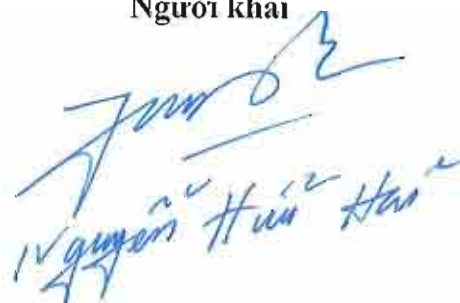 Người khai
Nguyễn Hữu Hải